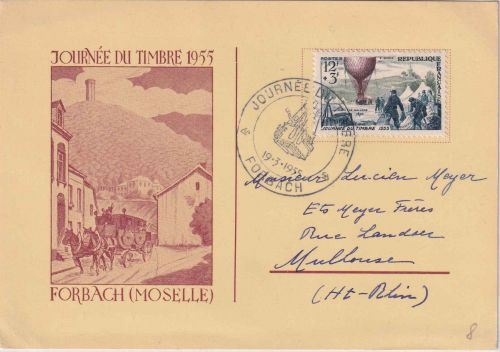 JOURNÉE DU TIMBRE 1955
FORBACH (MOSELLE)
POSTES
12F
+3F
REPUBLIQUE
FRANÇAISE
JOURNÉE DU TIMBRE 1955
JOURNÉE DU TIMBRE
19-3-1955
FORBACH
Monsieur Lucien Meyer
Ets Meyer Frères
Rue Landser
Mulhouse
(Ht-Rhin)
8